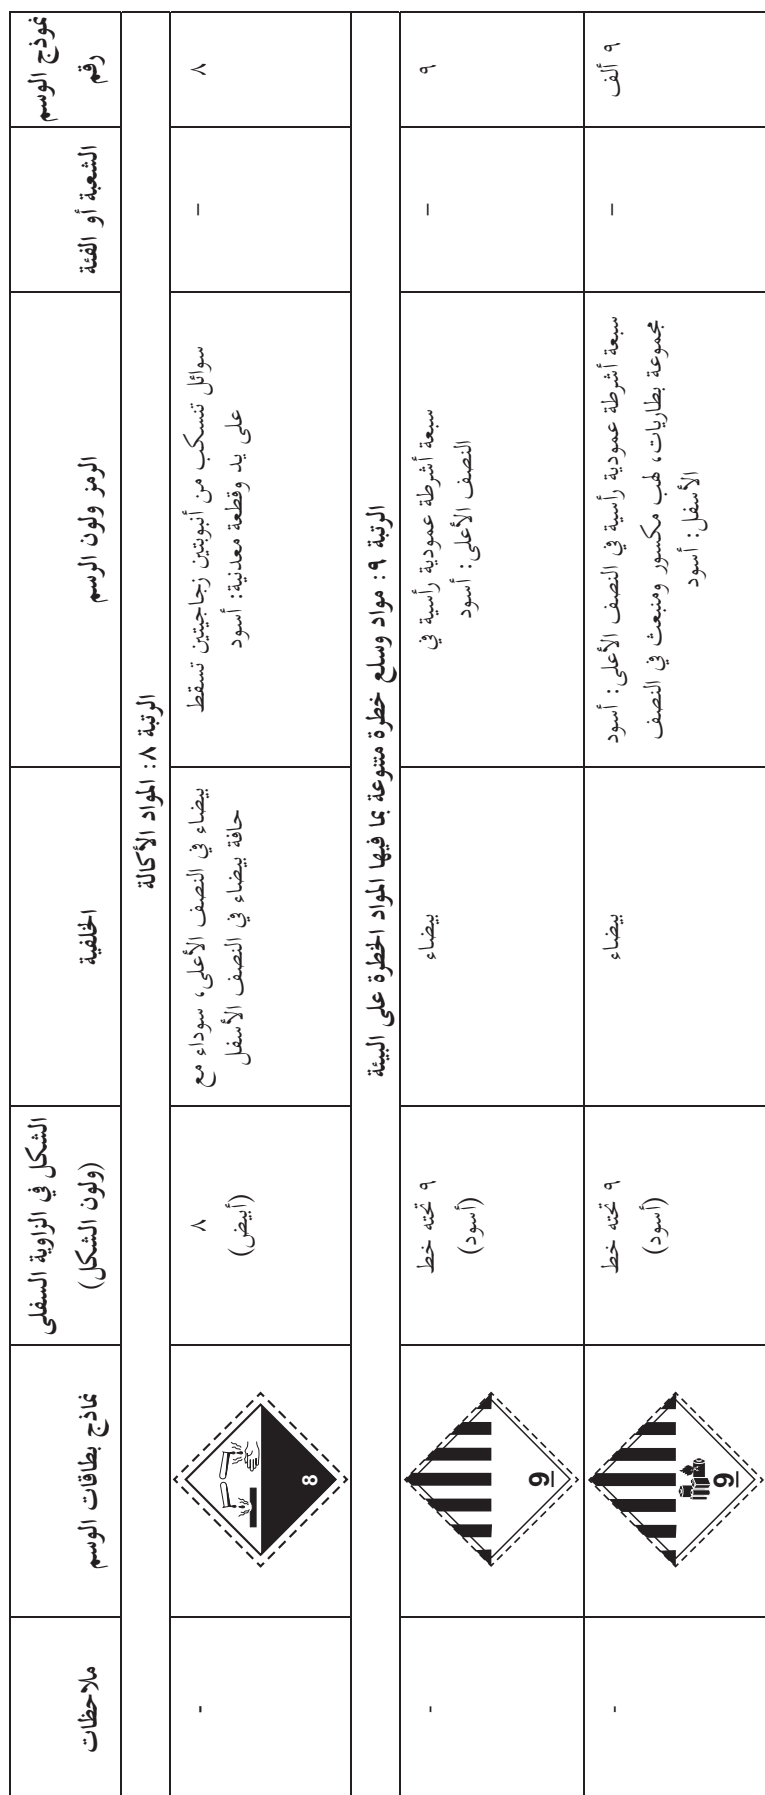 رقم
نموذج الوسم
الشعبة أو الفئة
الرمز ولون الرسم
الخلفية
الشكل في الزاوية السفلى
(ولون الشكل)
نماذج بطاقات الوسم
ملاحظات
الرتبة ٨: المواد الأكالة
٨
–
سوائل تنسكب من أنبوبتين زجاجيتين تسقط
على يد وقطعة معدنية: أسود
بيضاء في النصف الأعلى، سوداء مع
حافة بيضاء في النصف الأسفل
٨
(أبيض)
8
-
الرتبة ٩: مواد وسلع خطرة متنوعة بما فيها المواد الخطرة على البيئة
٩
–
سبعة أشرطة عمودية رأسية في
النصف الأعلى: أسود
بيضاء
٩ تحته خط
(أسود)
9
-
٩ ألف
–
سبعة أشرطة عمودية رأسية في النصف الأعلى: أسود
مجموعة بطاريات، لهب مكسور ومنبعث في النصف
الأسفل: أسود
بيضاء
٩ تحته خط
(أسود)
9
-